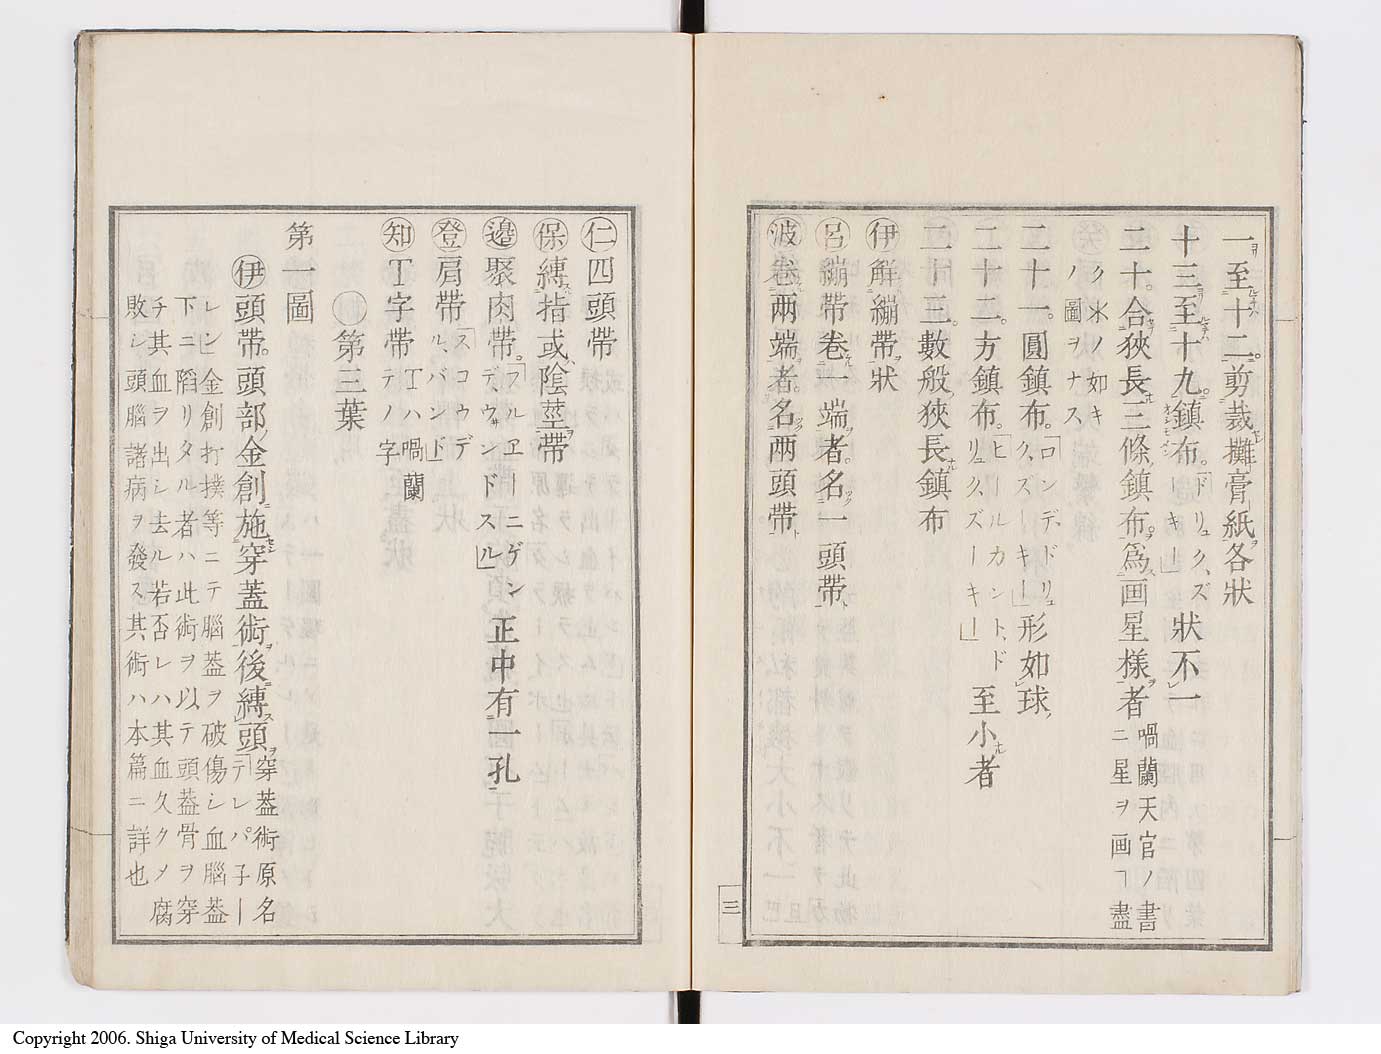 一至十二剪裁攤膏紙各狀
十三至十九鎮布「ドリュクズーキ」狀不一
二十合狹長三條鎮布爲画星樣者 喎蘭天官ノ書ニ星ヲ画ヿ盡
ク氷ノ如キノ圖ヲナス
二十一圓鎮布「ロンデドリュクズーキ」形如球
二十二方鎮布「ヒールカントドリュクズーキ」至小者
二十三數般狹長鎮布
伊解繃帶狀
呂繃帶卷一端者名一頭帶
波卷兩端者名兩頭帶
三
仁四頭帶
保縛指或陰莖帶
邉聚肉帶「フルヱーニゲンデウヲンドスル」正中有一孔
登肩帶「スコウデルバンド」
知丁字帶 丁ハ喎蘭テノ字
○第三葉
第一圖
伊頭帶頭部金創施穿蓋術後縛頭 穿蓋術原名「テレパ子ー
レン」金創打撲等ニテ腦蓋ヲ破傷シ血腦蓋
下ニ陷リタル者ハ此術ヲ以テ頭蓋骨ヲ穿
チ其血ヲ出シ去ル若否レハ其血久クメ腐
敗シ頭腦諸病ヲ發ス其術ハ本篇ニ詳也
Copyright 2006. Shiga University of Medical Science Library